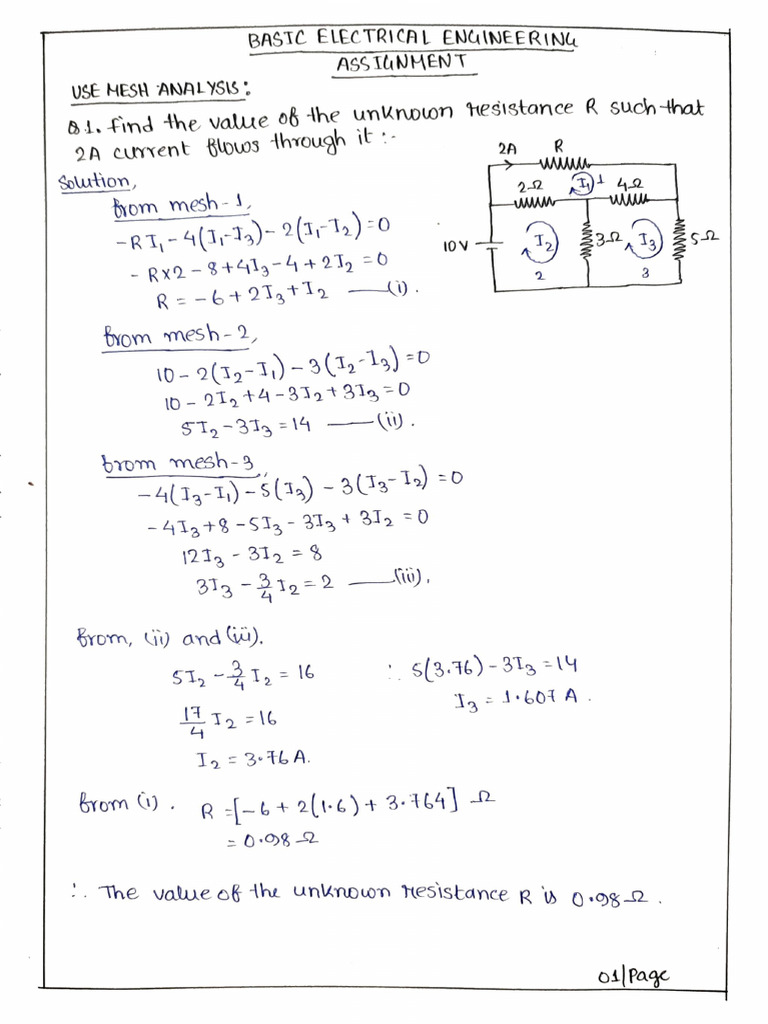 BASIC ELECTRICAL ENGINEERING
ASSIGNMENT
USE MESH ANALYSIS:
Q1. Find the value of the unknown resistance R such that
2A current flows through it :-
2A R
2Ω I₁ 1 4Ω
10V I₂ 3Ω I₃ 5Ω
2 3
Solution,
from mesh-1,
-RI₁-4(I₁-I₃)-2(I₁-I₂)=0
-R×2-8+4I₃-4+2I₂=0
R=-6+2I₃+I₂ —(i).
from mesh-2,
10-2(I₂-I₁)-3(I₂-I₃)=0
10-2I₂+4-3I₂+3I₃=0
5I₂-3I₃=14 —(ii).
from mesh-3,
-4(I₃-I₁)-5(I₃)-3(I₃-I₂)=0
-4I₃+8-5I₃-3I₃+3I₂=0
12I₃-3I₂=8
3I₃-3/4 I₂=2 —(iii).
from, (ii) and (iii).
5I₂-3/4 I₂=16 ∴ 5(3.76)-3I₃=14
17/4 I₂=16 I₃=1.607 A.
I₂=3.76A.
from (i). R=[-6+2(1.6)+3.764] Ω
=0.98Ω
∴ The value of the unknown resistance R is 0.98Ω.
01|Page